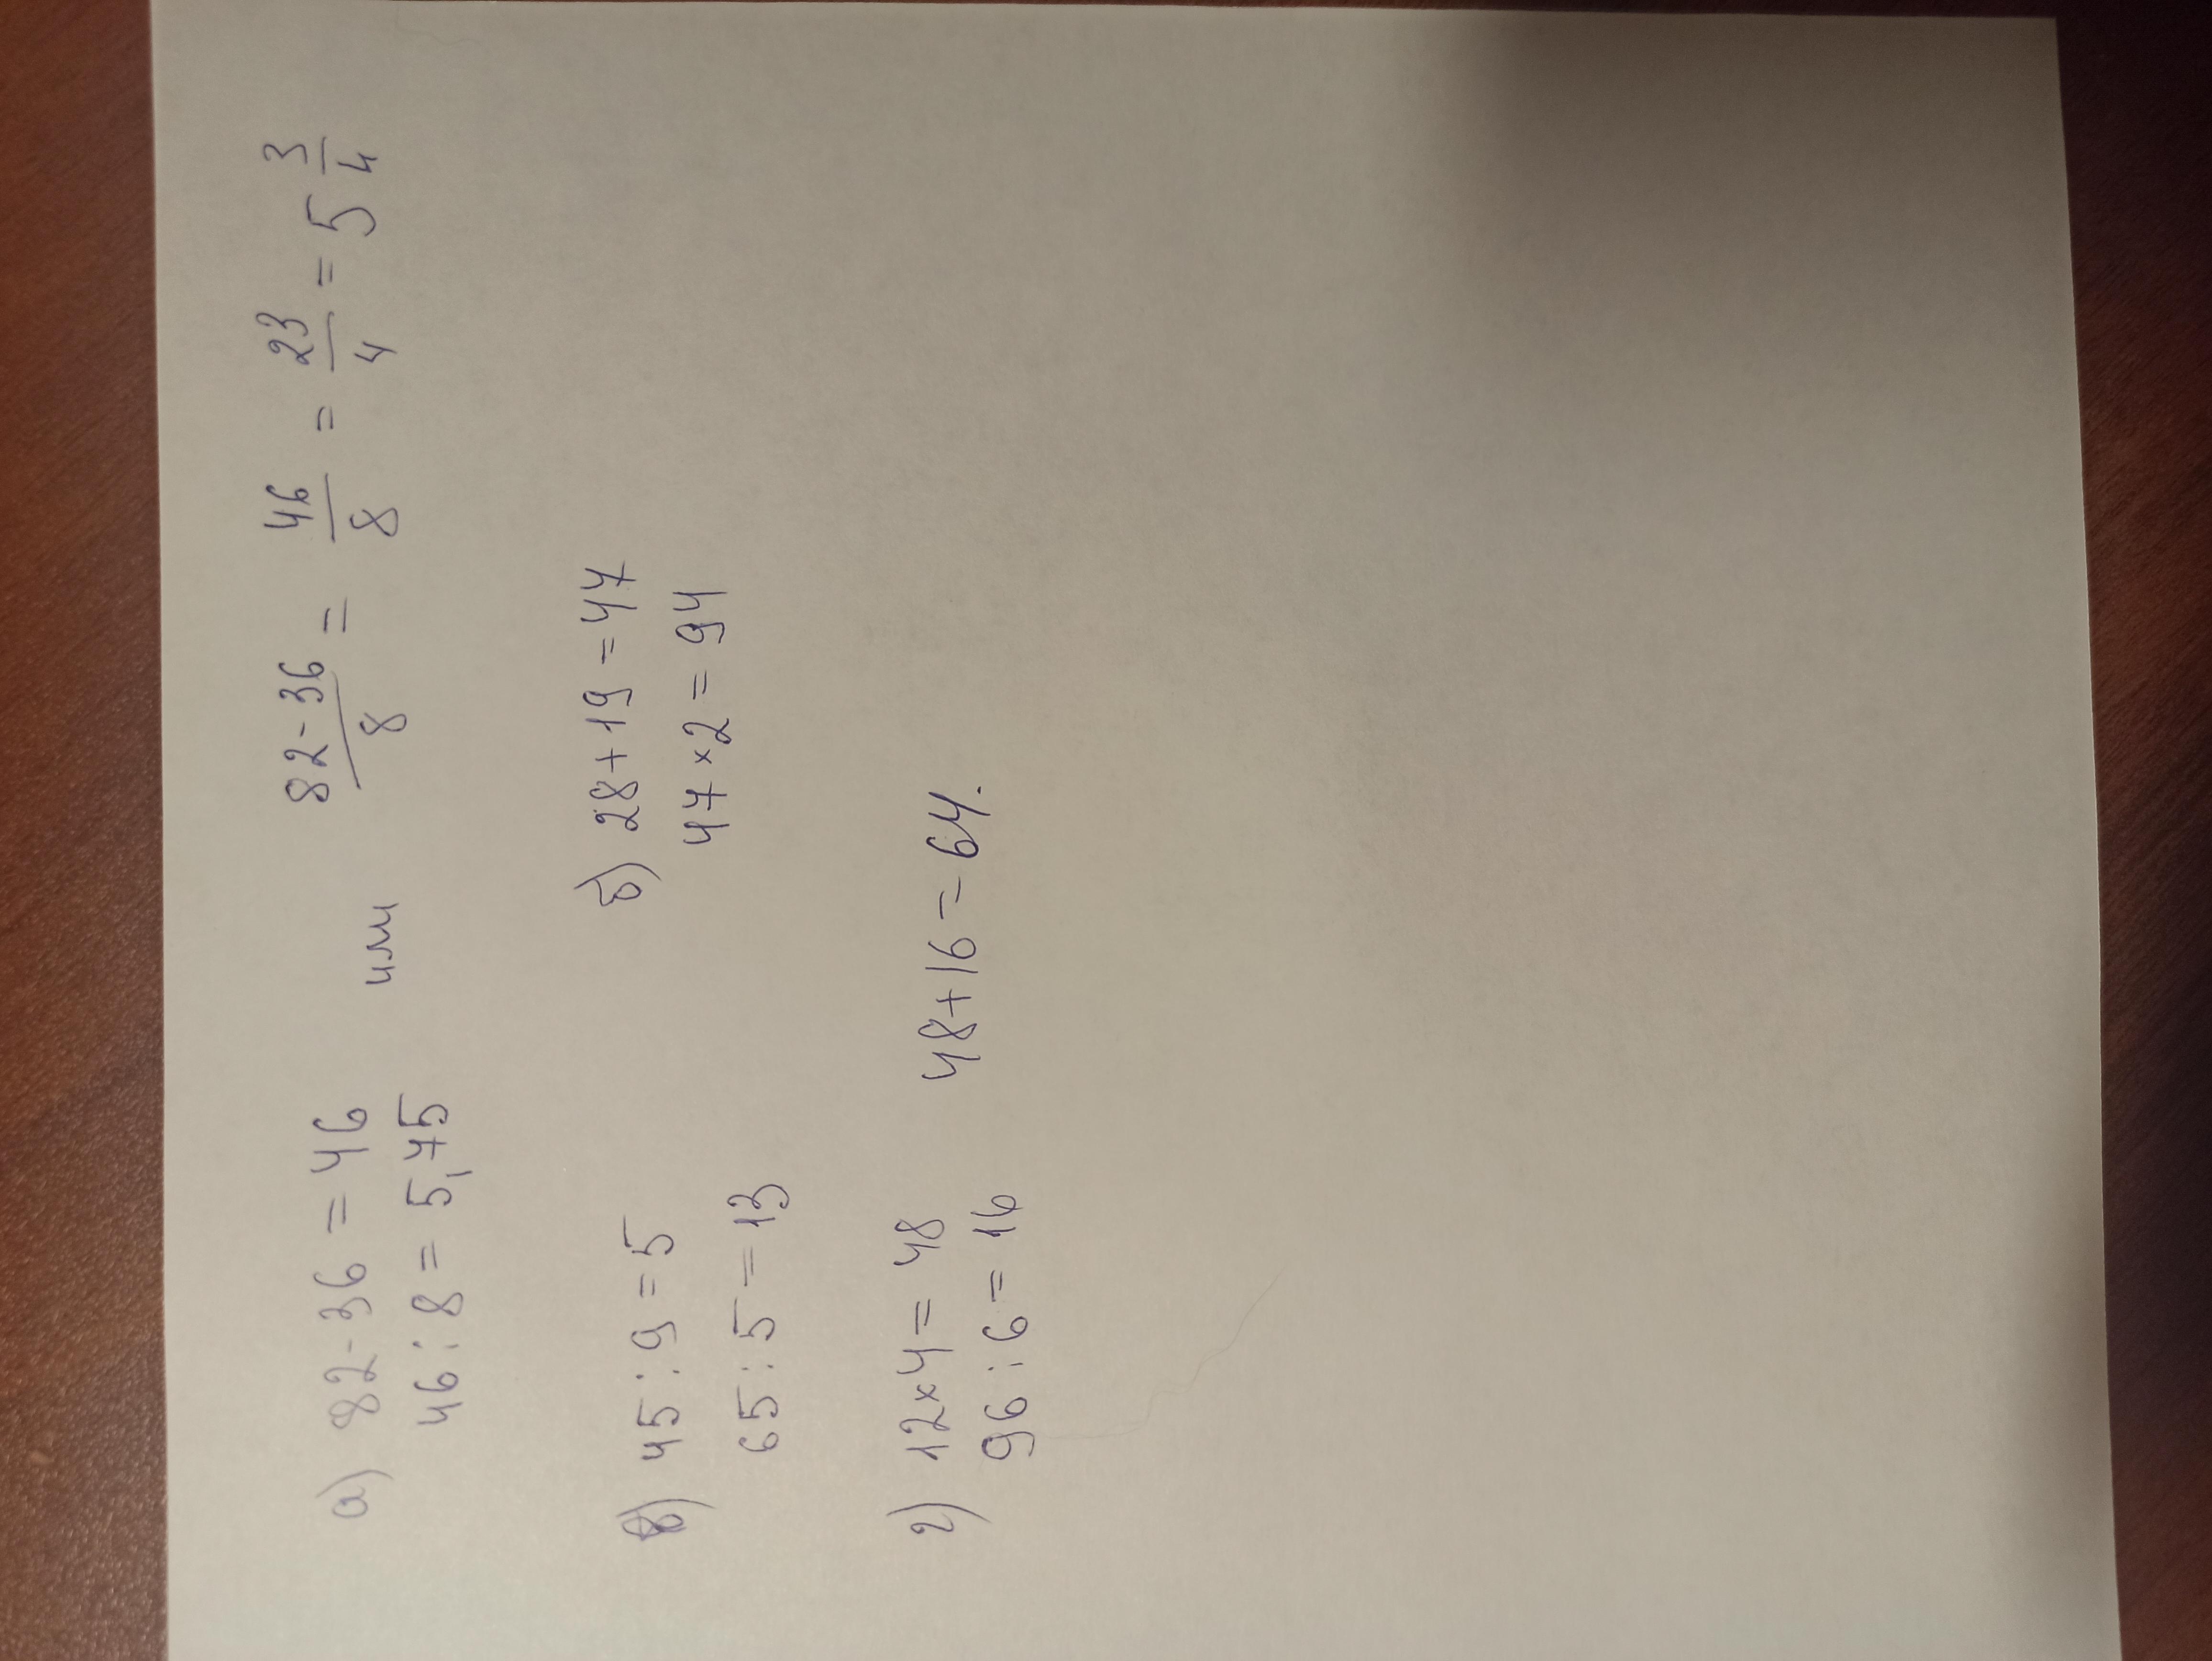 а) 82-36=46 или 82-36/8 = 46/8 = 23/4 = 5 3/4
46:8=5,75
в) 45:9=5 б) 28+19=47
65:5=13 47×2=94
г) 12×4=48 48+16=64.
96:6=16